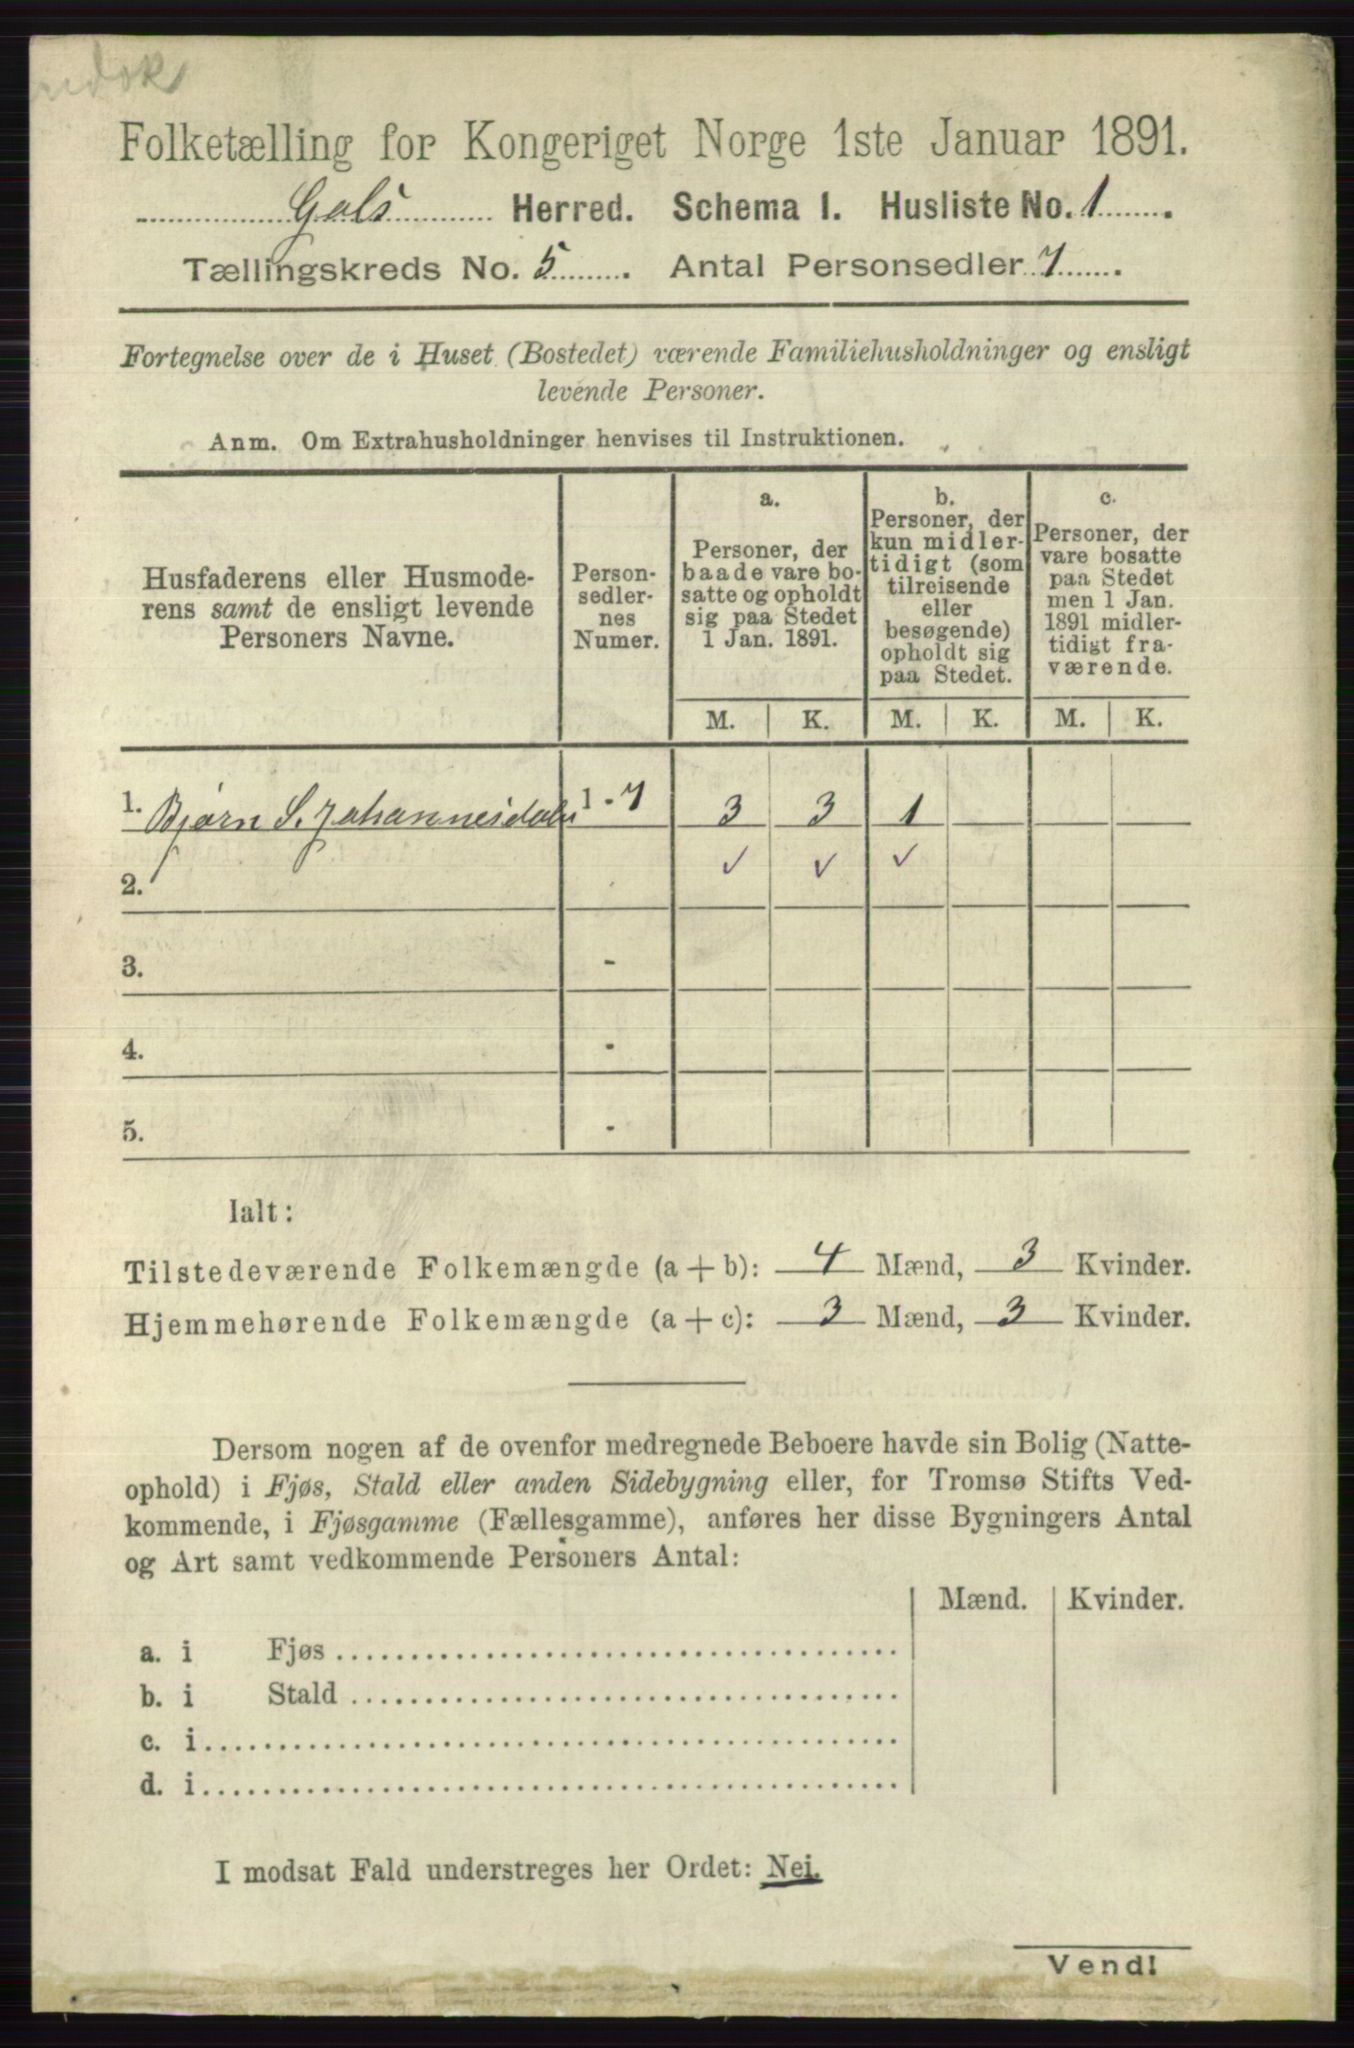 Folketælling for Kongeriget Norge 1ste Januar 1891.
Gols Herred. Schema 1. Husliste No. 1
Tællingskreds No. 5. Antal Personsedler 7.
Fortegnelse over de i Huset (Bostedet) værende Familiehusholdninger og ensligt
levende Personer.
Anm. Om Extrahusholdninger henvises til Instruktionen.
Husfaderens eller Husmode-
rens samt de ensligt levende
Personers Navne.
Person-
sedler-
nes
Numer.
a.
Personer, der
baade vare bo-
satte og opholdt
sig paa Stedet
1 Jan. 1891.
b.
Personer, der
kun midler-
tidigt (som
tilreisende
eller
besøgende)
opholdt sig
paa Stedet.
c.
Personer, der
vare bosatte
paa Stedet
men 1 Jan.
1891 midler-
tidigt fra-
værende.
M. K. M. K. M. K.
1. Bjørn S. Johannesdalen 1 - 7 3 3 1
✓ ✓ ✓
2.
3. -
4. -
5. -
Ialt:
Tilstedeværende Folkemængde (a + b): 4 Mænd, 3 Kvinder.
Hjemmehørende Folkemængde (a + c): 3 Mænd, 3 Kvinder.
Dersom nogen af de ovenfor medregnede Beboere havde sin Bolig (Natte-
ophold) i Fjøs, Stald eller anden Sidebygning eller, for Tromsø Stifts Ved-
kommende, i Fjøsgamme (Fællesgamme), anføres her disse Bygningers Antal
og Art samt vedkommende Personers Antal:
Mænd. Kvinder.
a. i Fjøs
b. i Stald
c. i
d. i
I modsat Fald understreges her Ordet: Nei.
Vend!